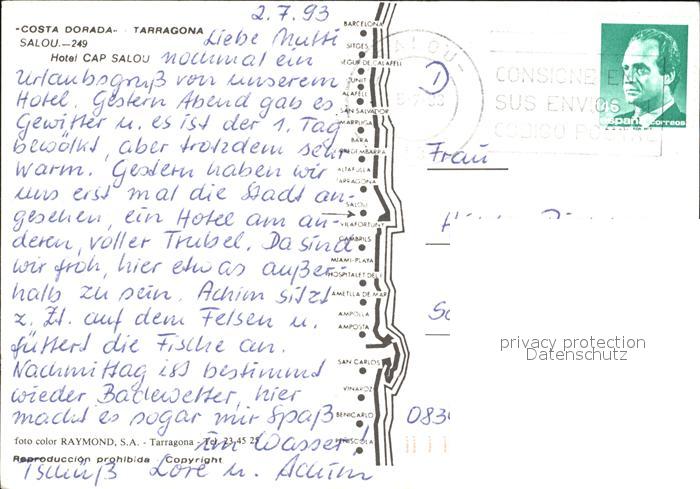 2.7.93
"COSTA DORADA" - TARRAGONA
SALOU.—249
Hotel CAP SALOU
Liebe Mutti
nochmal ein
Urlaubsgruß von unserem
Hotel. Gestern Abend gab es
Gewitter u. es ist der 1. Tag
bewölkt, aber trotzdem sehr
warm. Gestern haben wir
uns erst mal die Stadt an-
gesehen, ein Hotel am an-
deren, voller Trubel. Da sind
wir froh, hier etwas außer-
halb zu sein. Achim sitzt
z. Zt. auf dem Felsen u.
füttert die Fische an.
Nachmittag ist bestimmt
wieder Badewetter, hier
macht es sogar mir Spaß
im Wasser!
Tschüß Lore u. Achim
foto color RAYMOND, S.A. - Tarragona - Tel. 23 45 25
Reproducción prohibida - Copyright
BARCELONA
SITGES
SEGUR DE CALAFELL
CUNIT
CALAFELL
SAN SALVADOR
COMARRUGA
BARA
TORREDEMBARRA
ALTAFULLA
TARRAGONA
SALOU
VILAFORTUNY
CAMBRILS
MIAMI-PLAYA
HOSPITALET DEL I.
AMETLLA DE MAR
AMPOLLA
AMPOSTA
SAN CARLOS
VINAROZ
BENICARLO
PEÑISCOLA
SALOU
1
CONSIGNE EN
SUS ENVIOS EL
CODIGO POSTAL
españa correos
Frau
083
privacy protection
Datenschutz